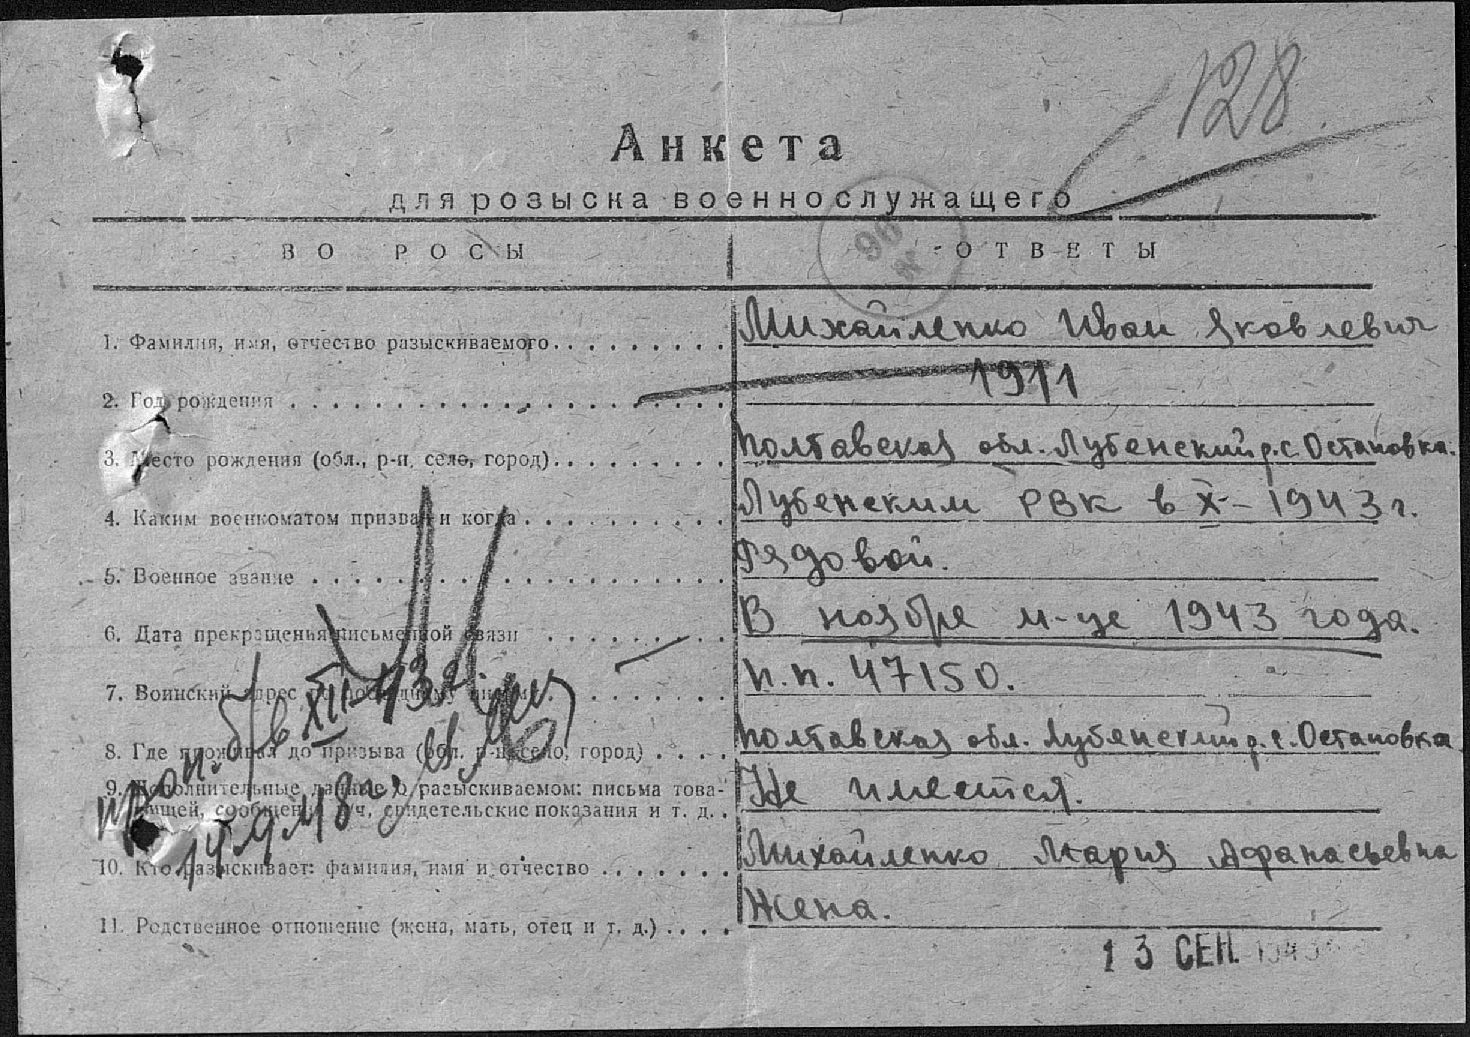 128
Анкета
для розыска военнослужащего
ВО РОСЫ
ОТВЕТЫ
1. Фамилия, имя, отчество разыскиваемого
Михайленко Иван Яковлевич
2. Год рождения
1911
3. Место рождения (обл., р-н, село, город)
Полтавская обл. Лубенский р. с. Остаповка.
4. Каким военкоматом призван и когда
Лубенским РВК в X-1943 г.
5. Военное звание
Рядовой.
6. Дата прекращенья письменной связи
В ноябре м-це 1943 года.
7. Воинский адрес по последнему письму
п.п. 47150.
8. Где проживал до призыва (обл. р-н, село, город)
Полтавская обл. Лубенский р. с. Остаповка
9. Дополнительные данные о разыскиваемом: письма това-
рищей, сообщен ч, свидетельские показания и т. д.
Не имеется.
10. Кто разыскивает: фамилия, имя и отчество
Михайленко Мария Афанасьевна
11. Родственное отношение (жена, мать, отец и т. д.)
Жена.
б/в XII-43 г.
14.9.48 г.
13 СЕН.